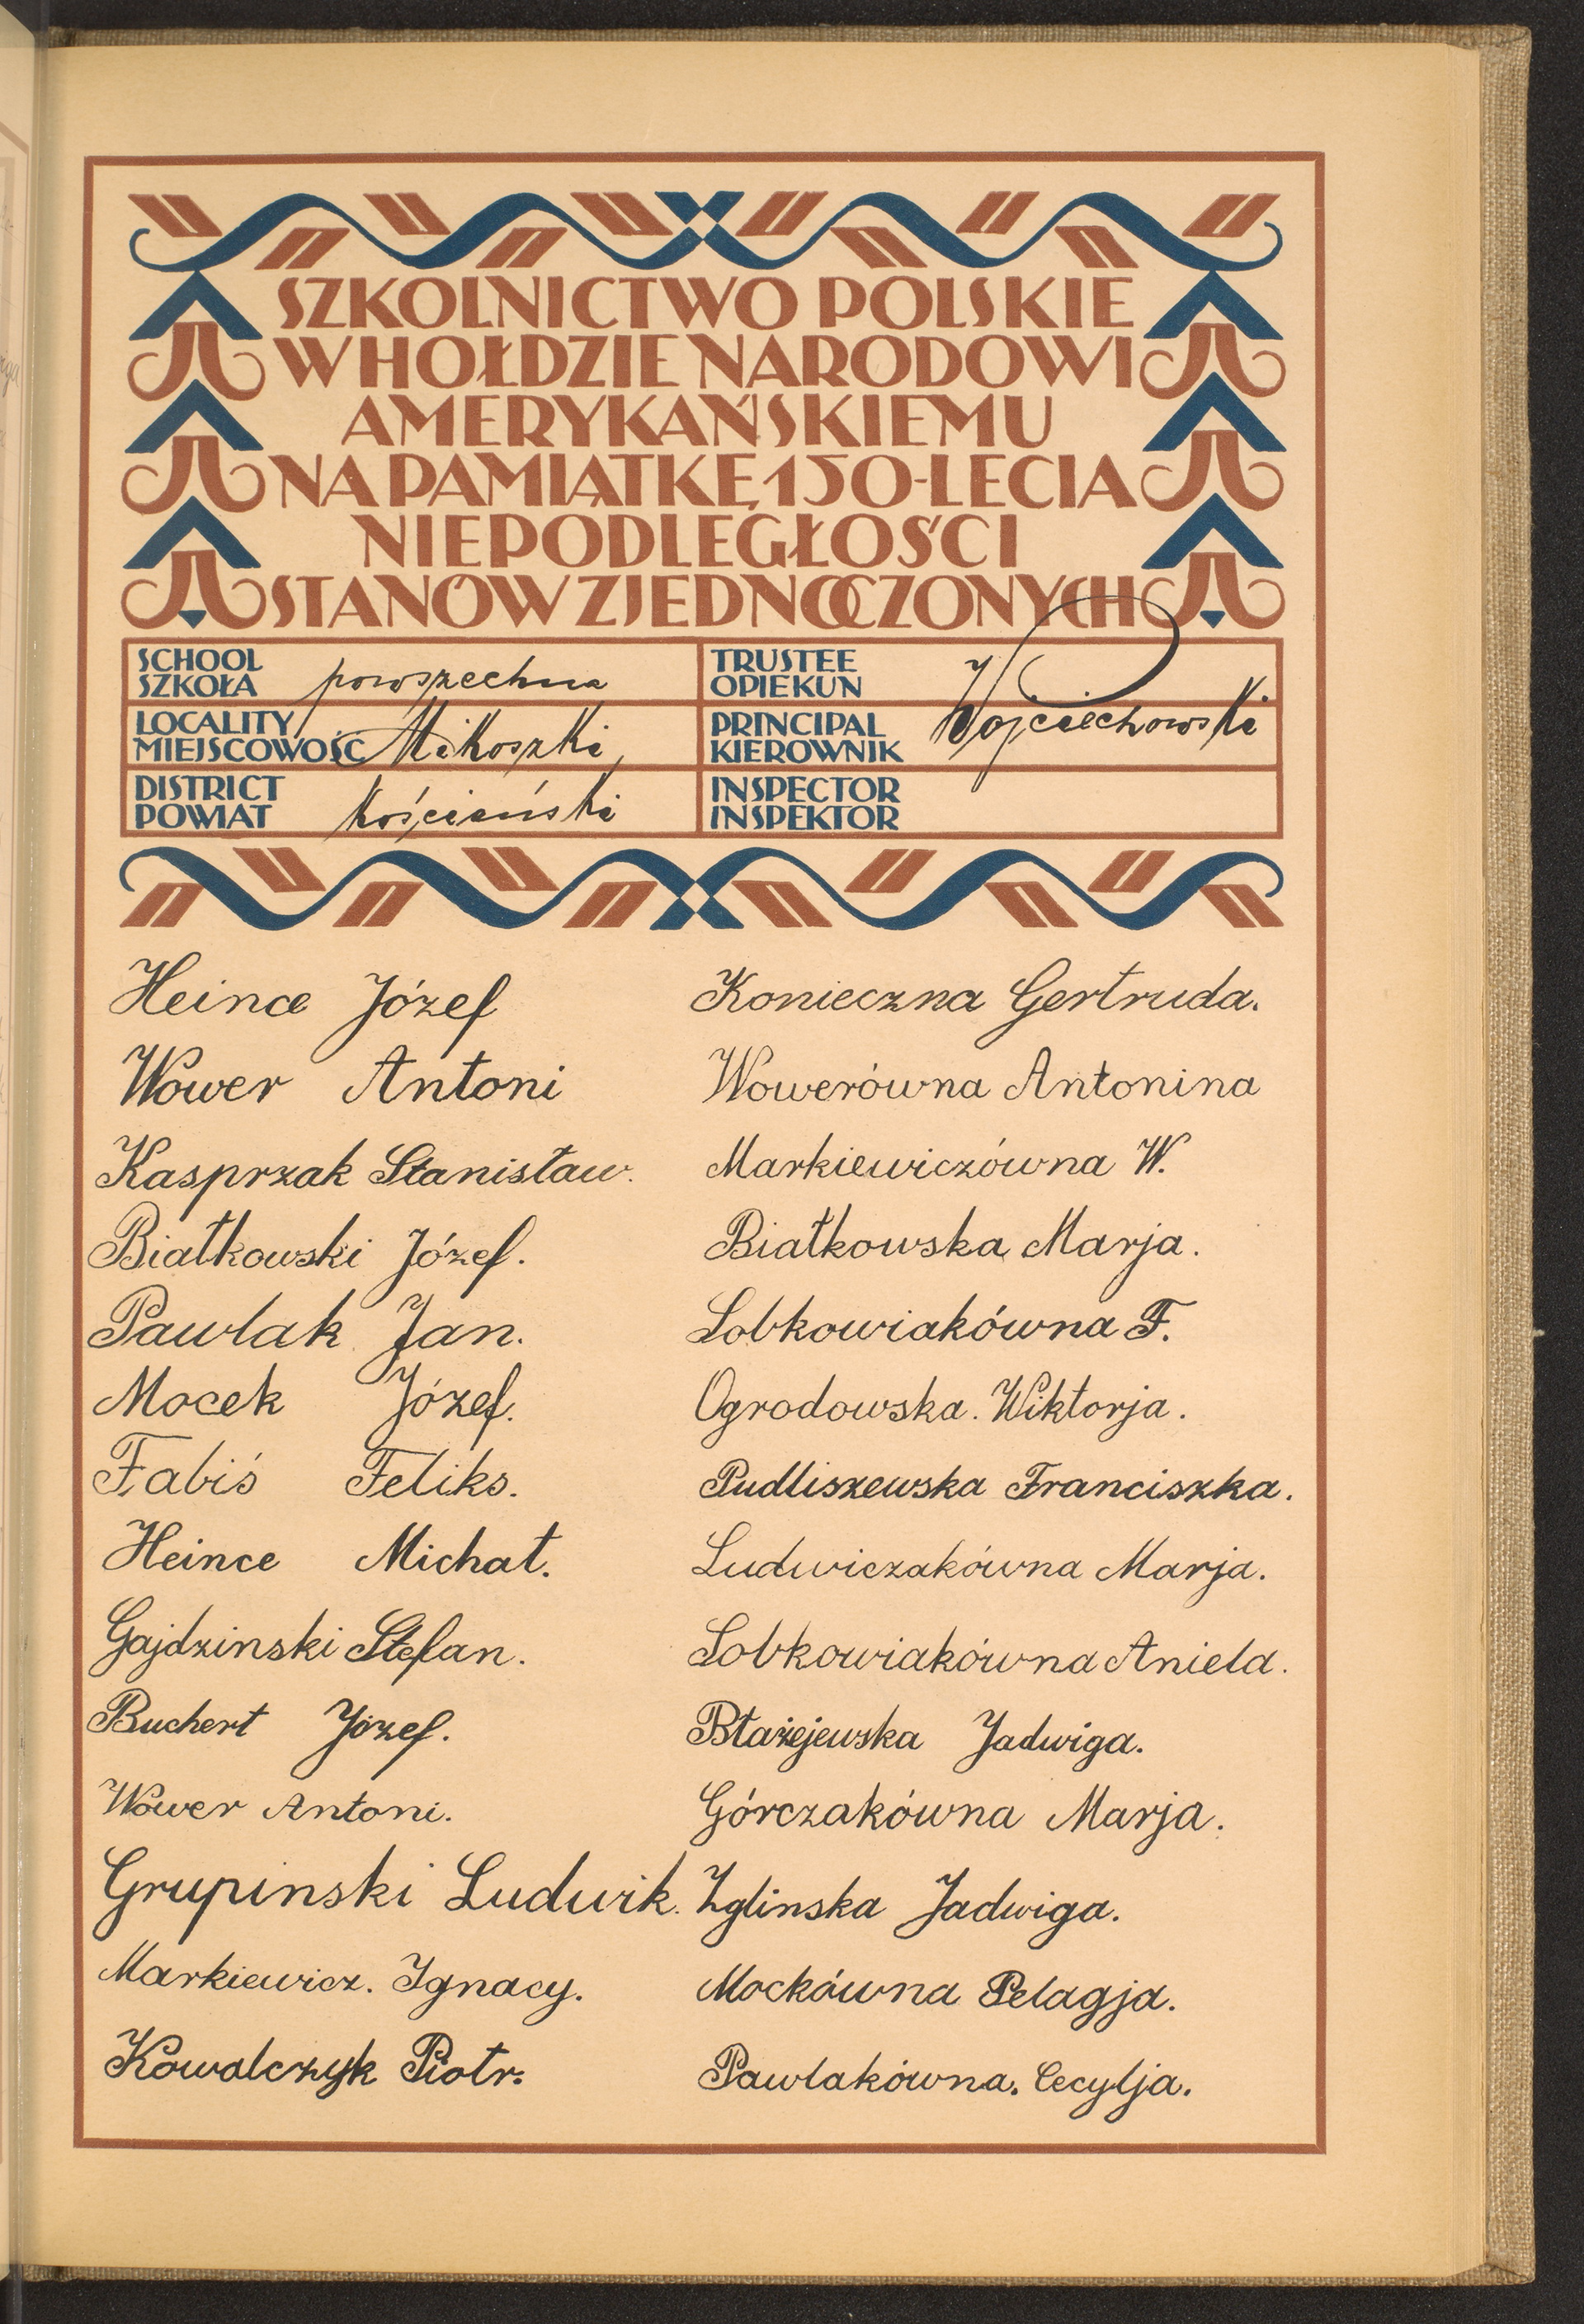 SZKOLNICTWO POLSKIE
W HOŁDZIE NARODOWI
AMERYKAŃSKIEMU
NA PAMIĄTKĘ 150-LECIA
NIEPODLEGŁOŚCI
STANÓW ZJEDNOCZONYCH
SCHOOL
SZKOŁA powszechna
LOCALITY
MIEJSCOWOŚĆ Mikoszki
DISTRICT
POWIAT Kościański
TRUSTEE
OPIEKUN
PRINCIPAL
KIEROWNIK Wojciechowski
INSPECTOR
INSPEKTOR
Heince Józef
Wower Antoni
Kasprzak Stanisław.
Białkowski Józef.
Pawlak Jan.
Mocek Józef.
Fabiś Feliks.
Heince Michał.
Gajdzinski Stefan.
Buchert Józef.
Wower Antoni.
Grupinski Ludwik.
Markiewicz. Ignacy.
Kowalczyk Piotr.
Konieczna Gertruda.
Wowerówna Antonina
Markiewiczówna W.
Białkowska Marja.
Lobkowiakówna F.
Ogrodowska. Wiktorja.
Pudliszewska Franciszka.
Ludwiczakówna Marja.
Lobkowiakówna Aniela.
Błażejewska Jadwiga.
Górczakówna Marja.
Zglinska Jadwiga.
Mockówna Pelagja.
Pawlakówna. Cecylja.